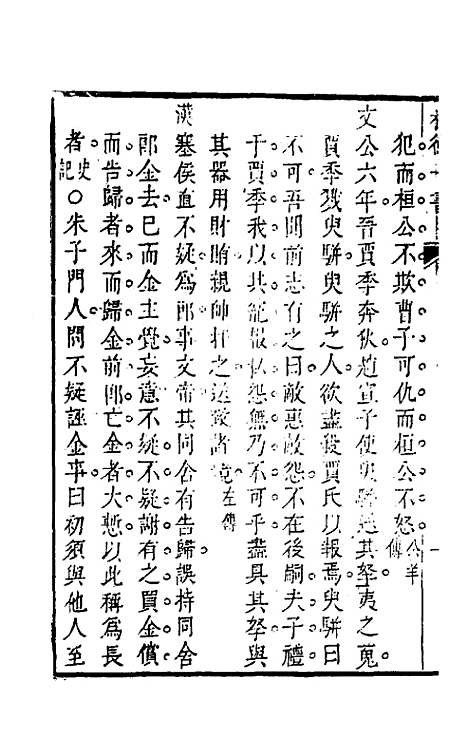 犯而桓公不欺曹子可仇而桓公不怒公羊傳
文公六年晉賈季奔狄趙宣子使臾駢送其孥夷之蒐
賈季戮臾駢臾駢之人欲盡殺賈氏以報焉臾駢曰
不可吾聞前志有之曰敵惠敵怨不在後嗣夫子禮
于賈季我以其寵報私怨無乃不可乎盡具其孥與
其器用財賄親帥扞之送致諸竟左傳
漢塞侯直不疑爲郎事文帝其同舍有告歸誤持同舍
郎金去已而金主覺妄意不疑不疑謝有之買金償
而告歸者來而歸金前郎亡金者大慙以此稱爲長
者史記○朱子門人問不疑誣金事曰初須與他人至